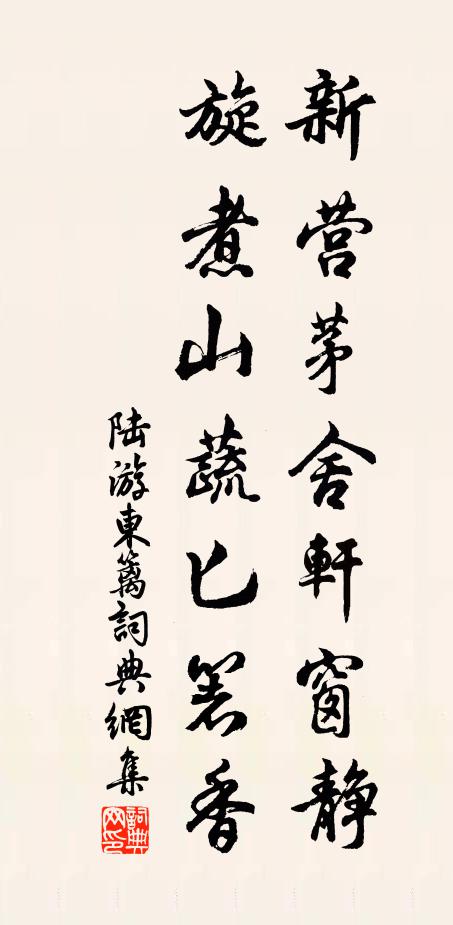 新营茅舍軒窗静
旋煮山蔬匕箸香
陆游東篱詞典網集
詞典网印